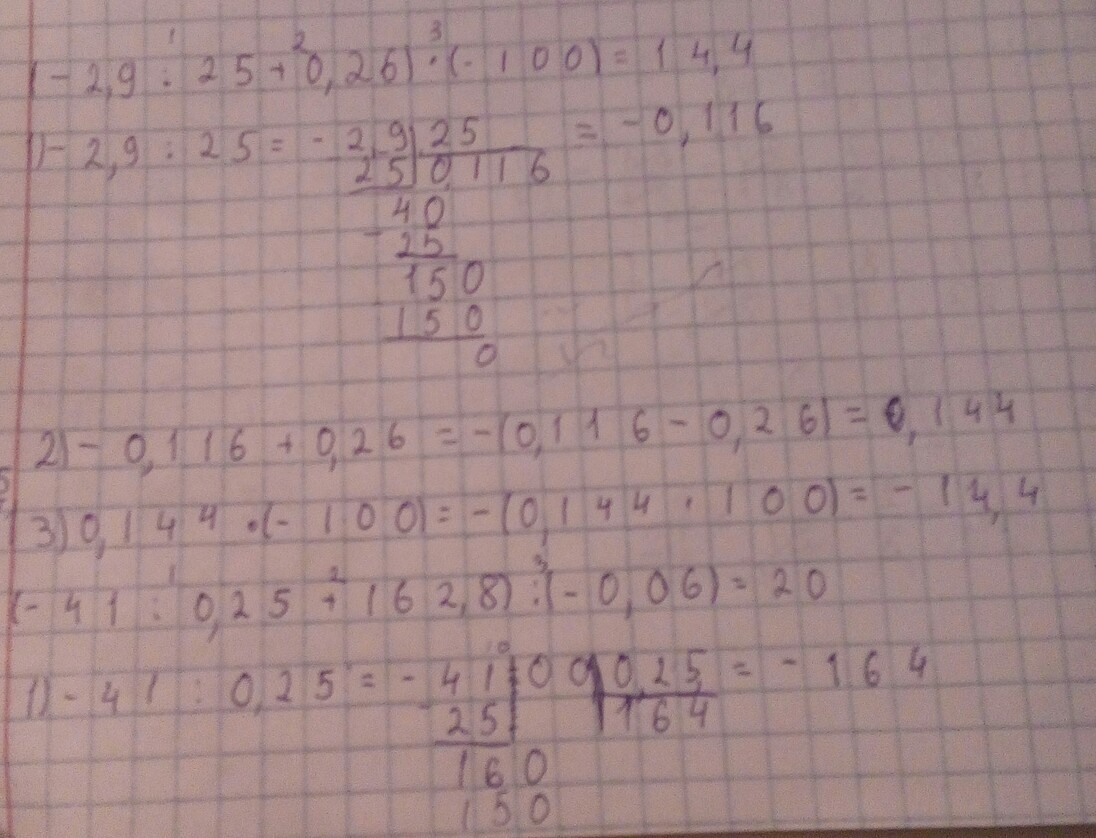 (-2,9 : 25 + 0,26) · (-100) = 14,4
1 2 3
1) -2,9 : 25 = - 2,9 | 25 = -0,116
25 | 0,116
40
- 25
150
150
0
2) -0,116 + 0,26 = -(0,116 - 0,26) = 0,144
3) 0,144 · (-100) = -(0,144 · 100) = -14,4
(-41 : 0,25 + 162,8) : (-0,06) = 20
1 2 3
1) -41 : 0,25 = - 41,00 | 0,25 = -164
25 | 164
160
150